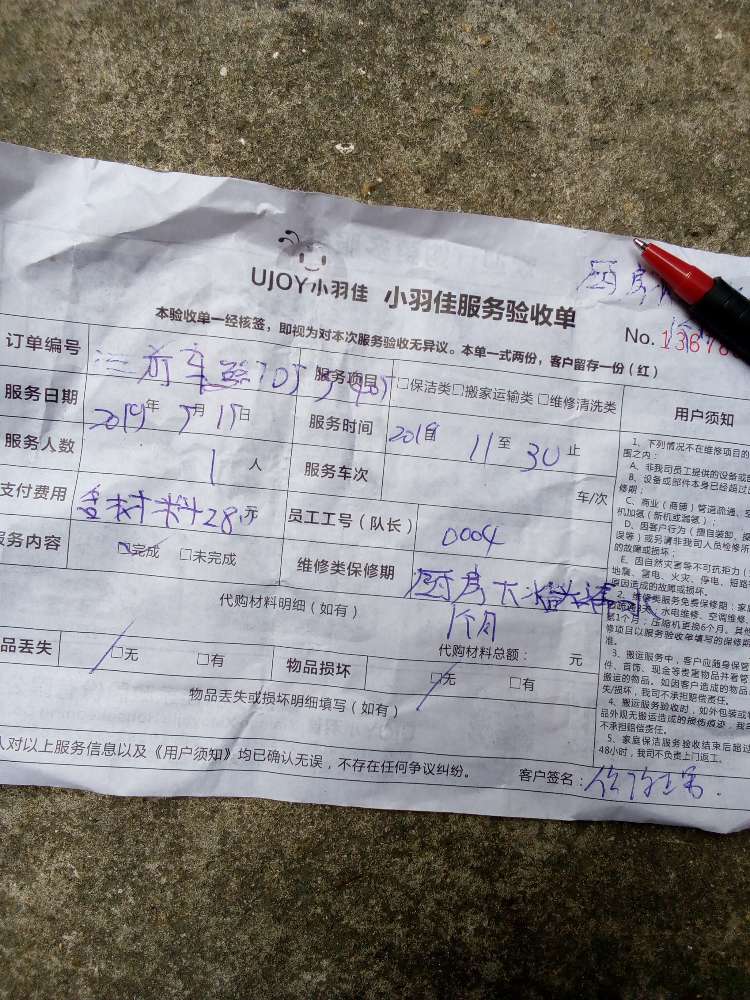 厨房
UJOY小羽佳 小羽佳服务验收单
No. 13678
本验收单一经核签，即视为对本次服务验收无异议。本单一式两份，客户留存一份（红）
订单编号 服务项目 □保洁类□搬家运输类□维修清洗类
服务日期 2019年 5月 15日 服务时间 11至 30止
服务人数 1 人 服务车次 车/次
支付费用 含材料28元 员工工号（队长） 0004
服务内容 □完成 □未完成 维修类保修期 厨房
1个月
代购材料明细（如有） 代购材料总额： 元
品丢失 □无 □有 物品损坏 □无 □有
物品丢失或损坏明细填写（如有）
人对以上服务信息以及《用户须知》均已确认无误，不存在任何争议纠纷。 客户签名：
用户须知
1、下列情况不在维修项目的
围之内：
A、非我司员工提供的设备或
B、设备或部件本身已经超过
修期；
C、商业（商铺）管道疏通、空
机加氨（新机或漏氨）；
D、因客户行为（擅自装卸、
误等）或另请非我司人员检修所
的故障或损坏；
E、因自然灾害等不可抗拒力（
地震、雷电、火灾、停电、短路
原因造成的故障或损坏。
2、维修类服务免费保修期：家
水电维修、空调维修、
1个月；压缩机更换6个月。其他
修项目以服务验收单填写的保修期
准。
3、搬运服务中，客户应随身保管
件、首饰、现金等贵重物品并看管
搬运的物品。如因客户造成的物品
失/损坏，我司不承担赔偿责任。
4、搬运服务验收时，如外包装或
品外观无搬运造成的损伤痕迹，我
不承担赔偿责任。
5、家庭保洁服务验收结束后超过
48小时，我司不负责上门返工。